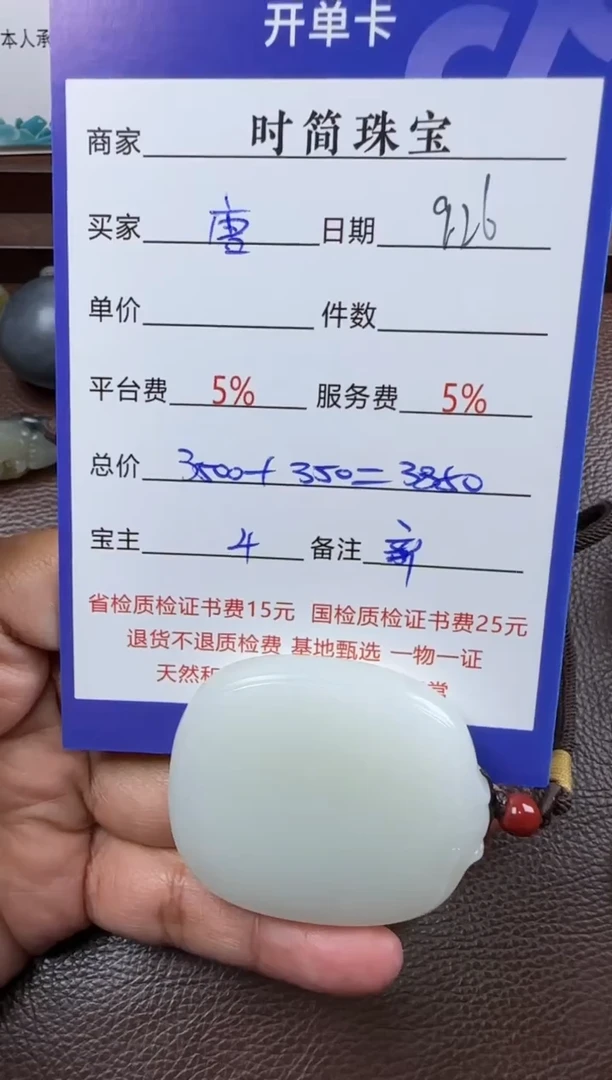 本人承
开单卡
商家 时简珠宝
买家 唐 日期 9.26
单价 件数
平台费 5% 服务费 5%
总价 3500+350=3850
宝主 4 备注
省检质检证书费15元 国检质检证书费25元
退货不退质检费 基地甄选 一物一证
天然和